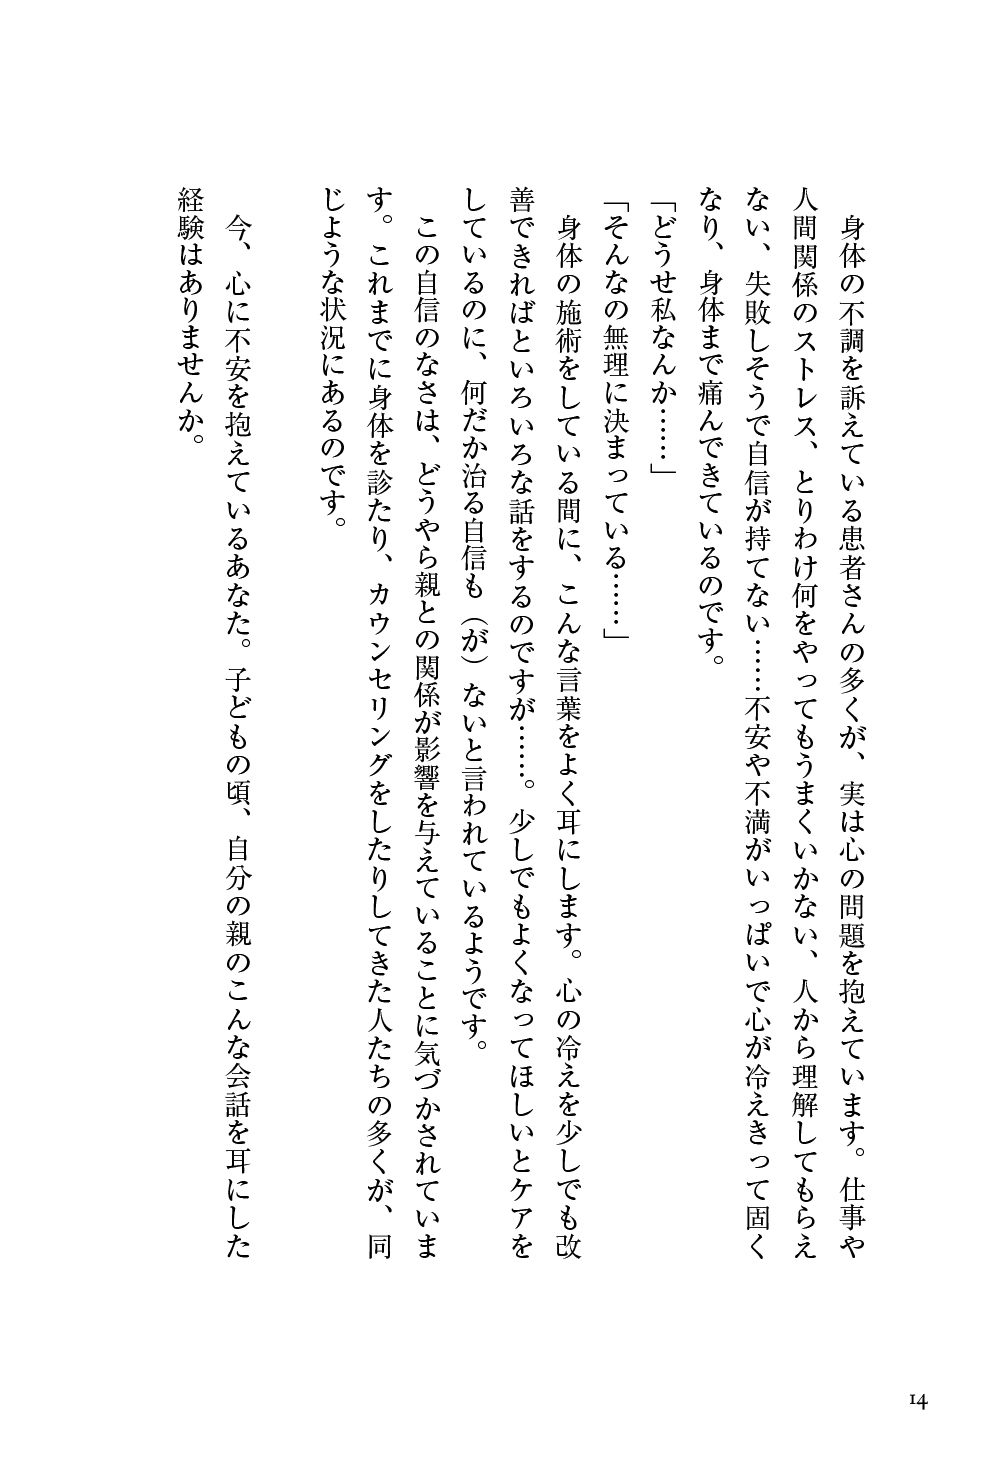 身体の不調を訴えている患者さんの多くが、実は心の問題を抱えています。仕事や
人間関係のストレス、とりわけ何をやってもうまくいかない、人から理解してもらえ
ない、失敗しそうで自信が持てない……不安や不満がいっぱいで心が冷えきって固く
なり、身体まで痛んできているのです。
「どうせ私なんか……」
「そんなの無理に決まっている……」
身体の施術をしている間に、こんな言葉をよく耳にします。心の冷えを少しでも改
善できればといろいろな話をするのですが……。少しでもよくなってほしいとケアを
しているのに、何だか治る自信も（が）ないと言われているようです。
この自信のなさは、どうやら親との関係が影響を与えていることに気づかされていま
す。これまでに身体を診たり、カウンセリングをしたりしてきた人たちの多くが、同
じような状況にあるのです。
今、心に不安を抱えているあなた。子どもの頃、自分の親のこんな会話を耳にした
経験はありませんか。
14